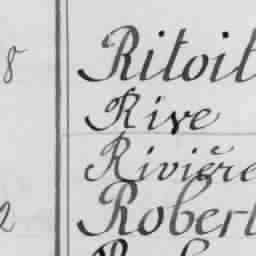 8 Ritoit
Rive
Rivière
2 Robert